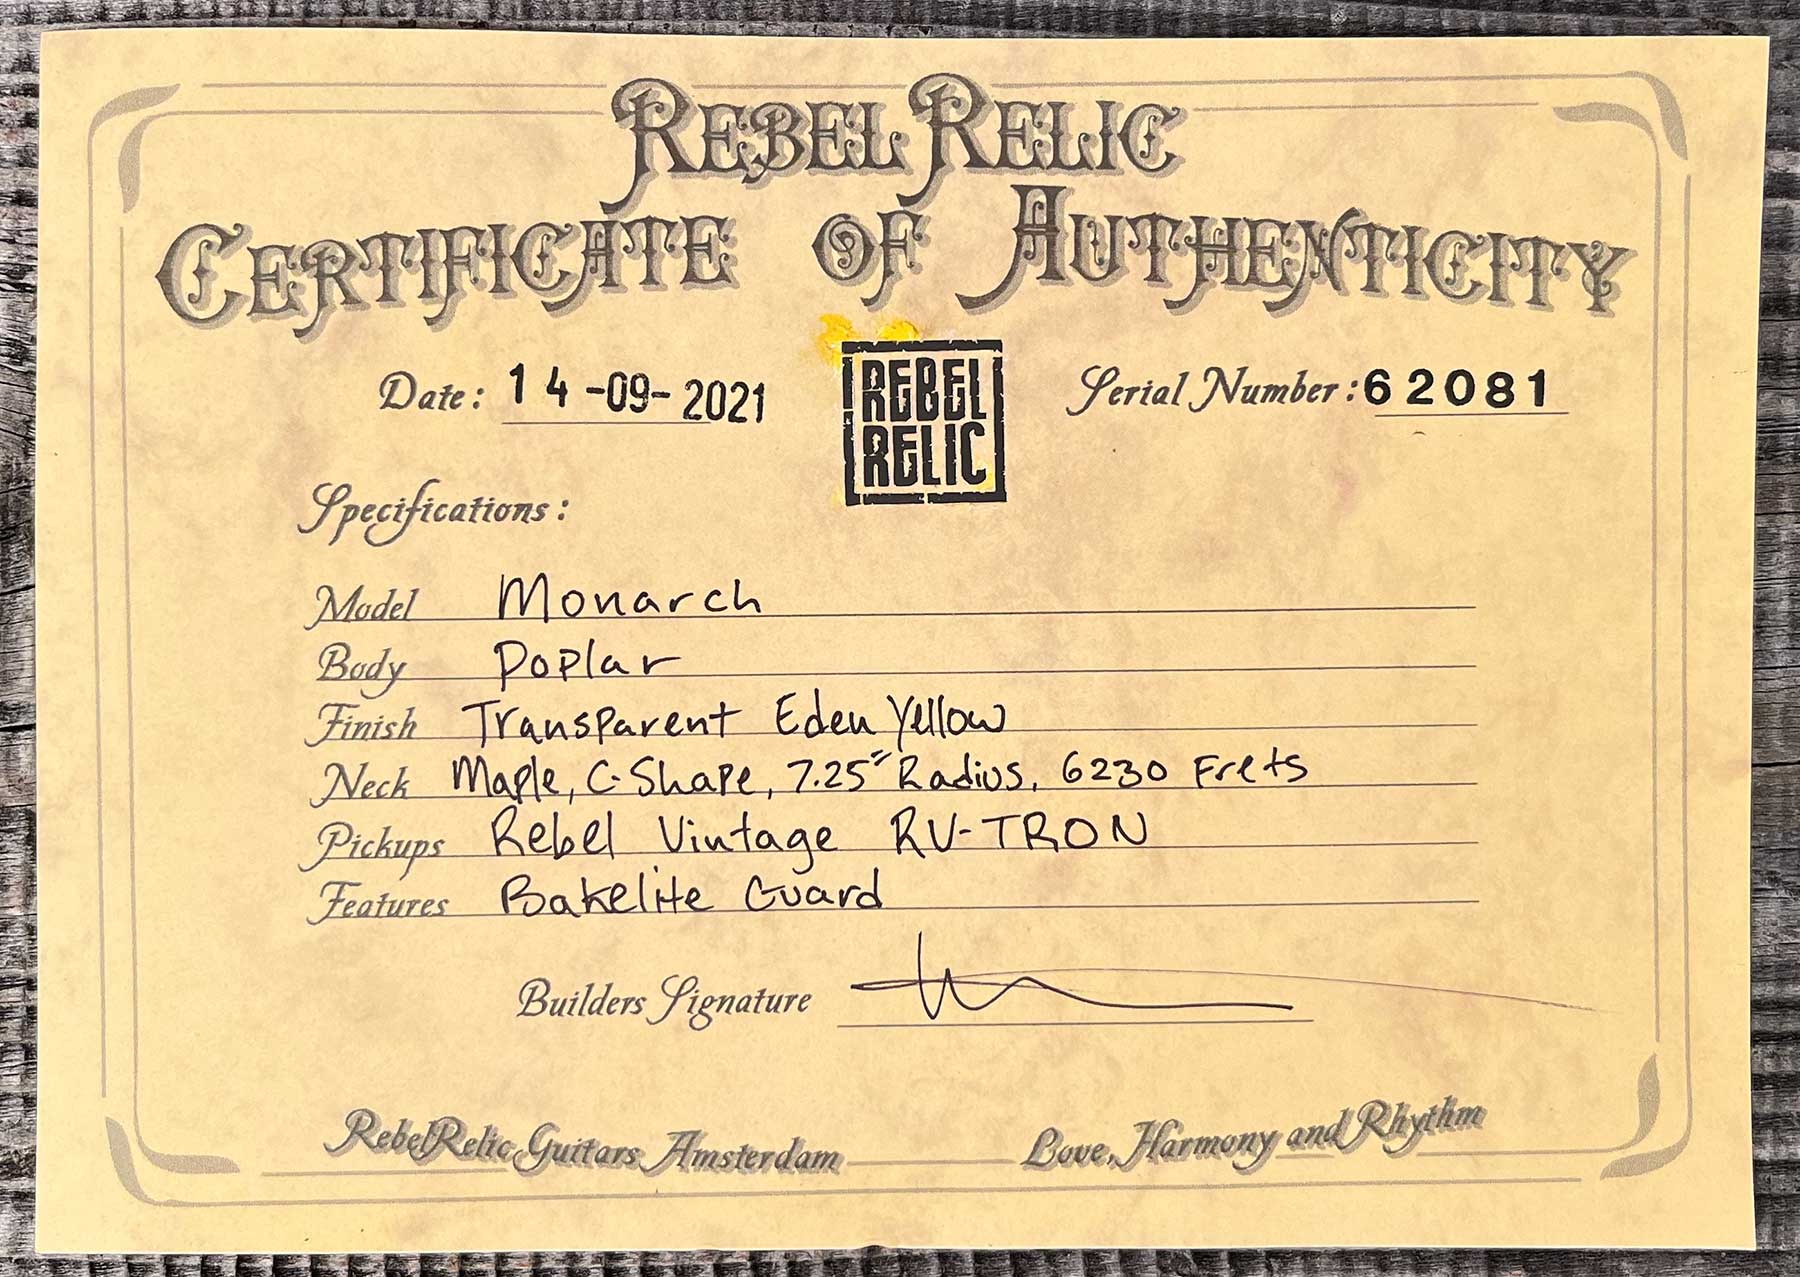 REBEL RELIC
CERTIFICATE OF AUTHENTICITY
Date: 14-09-2021
REBEL
RELIC
Serial Number: 62081
Specifications:
Model Monarch
Body Poplar
Finish Transparent Eden Yellow
Neck Maple, C-Shape, 7.25" Radius, 6230 Frets
Pickups Rebel Vintage RV-TRON
Features Bakelite Guard
Builders Signature
RebelRelic Guitars Amsterdam
Love, Harmony and Rhythm